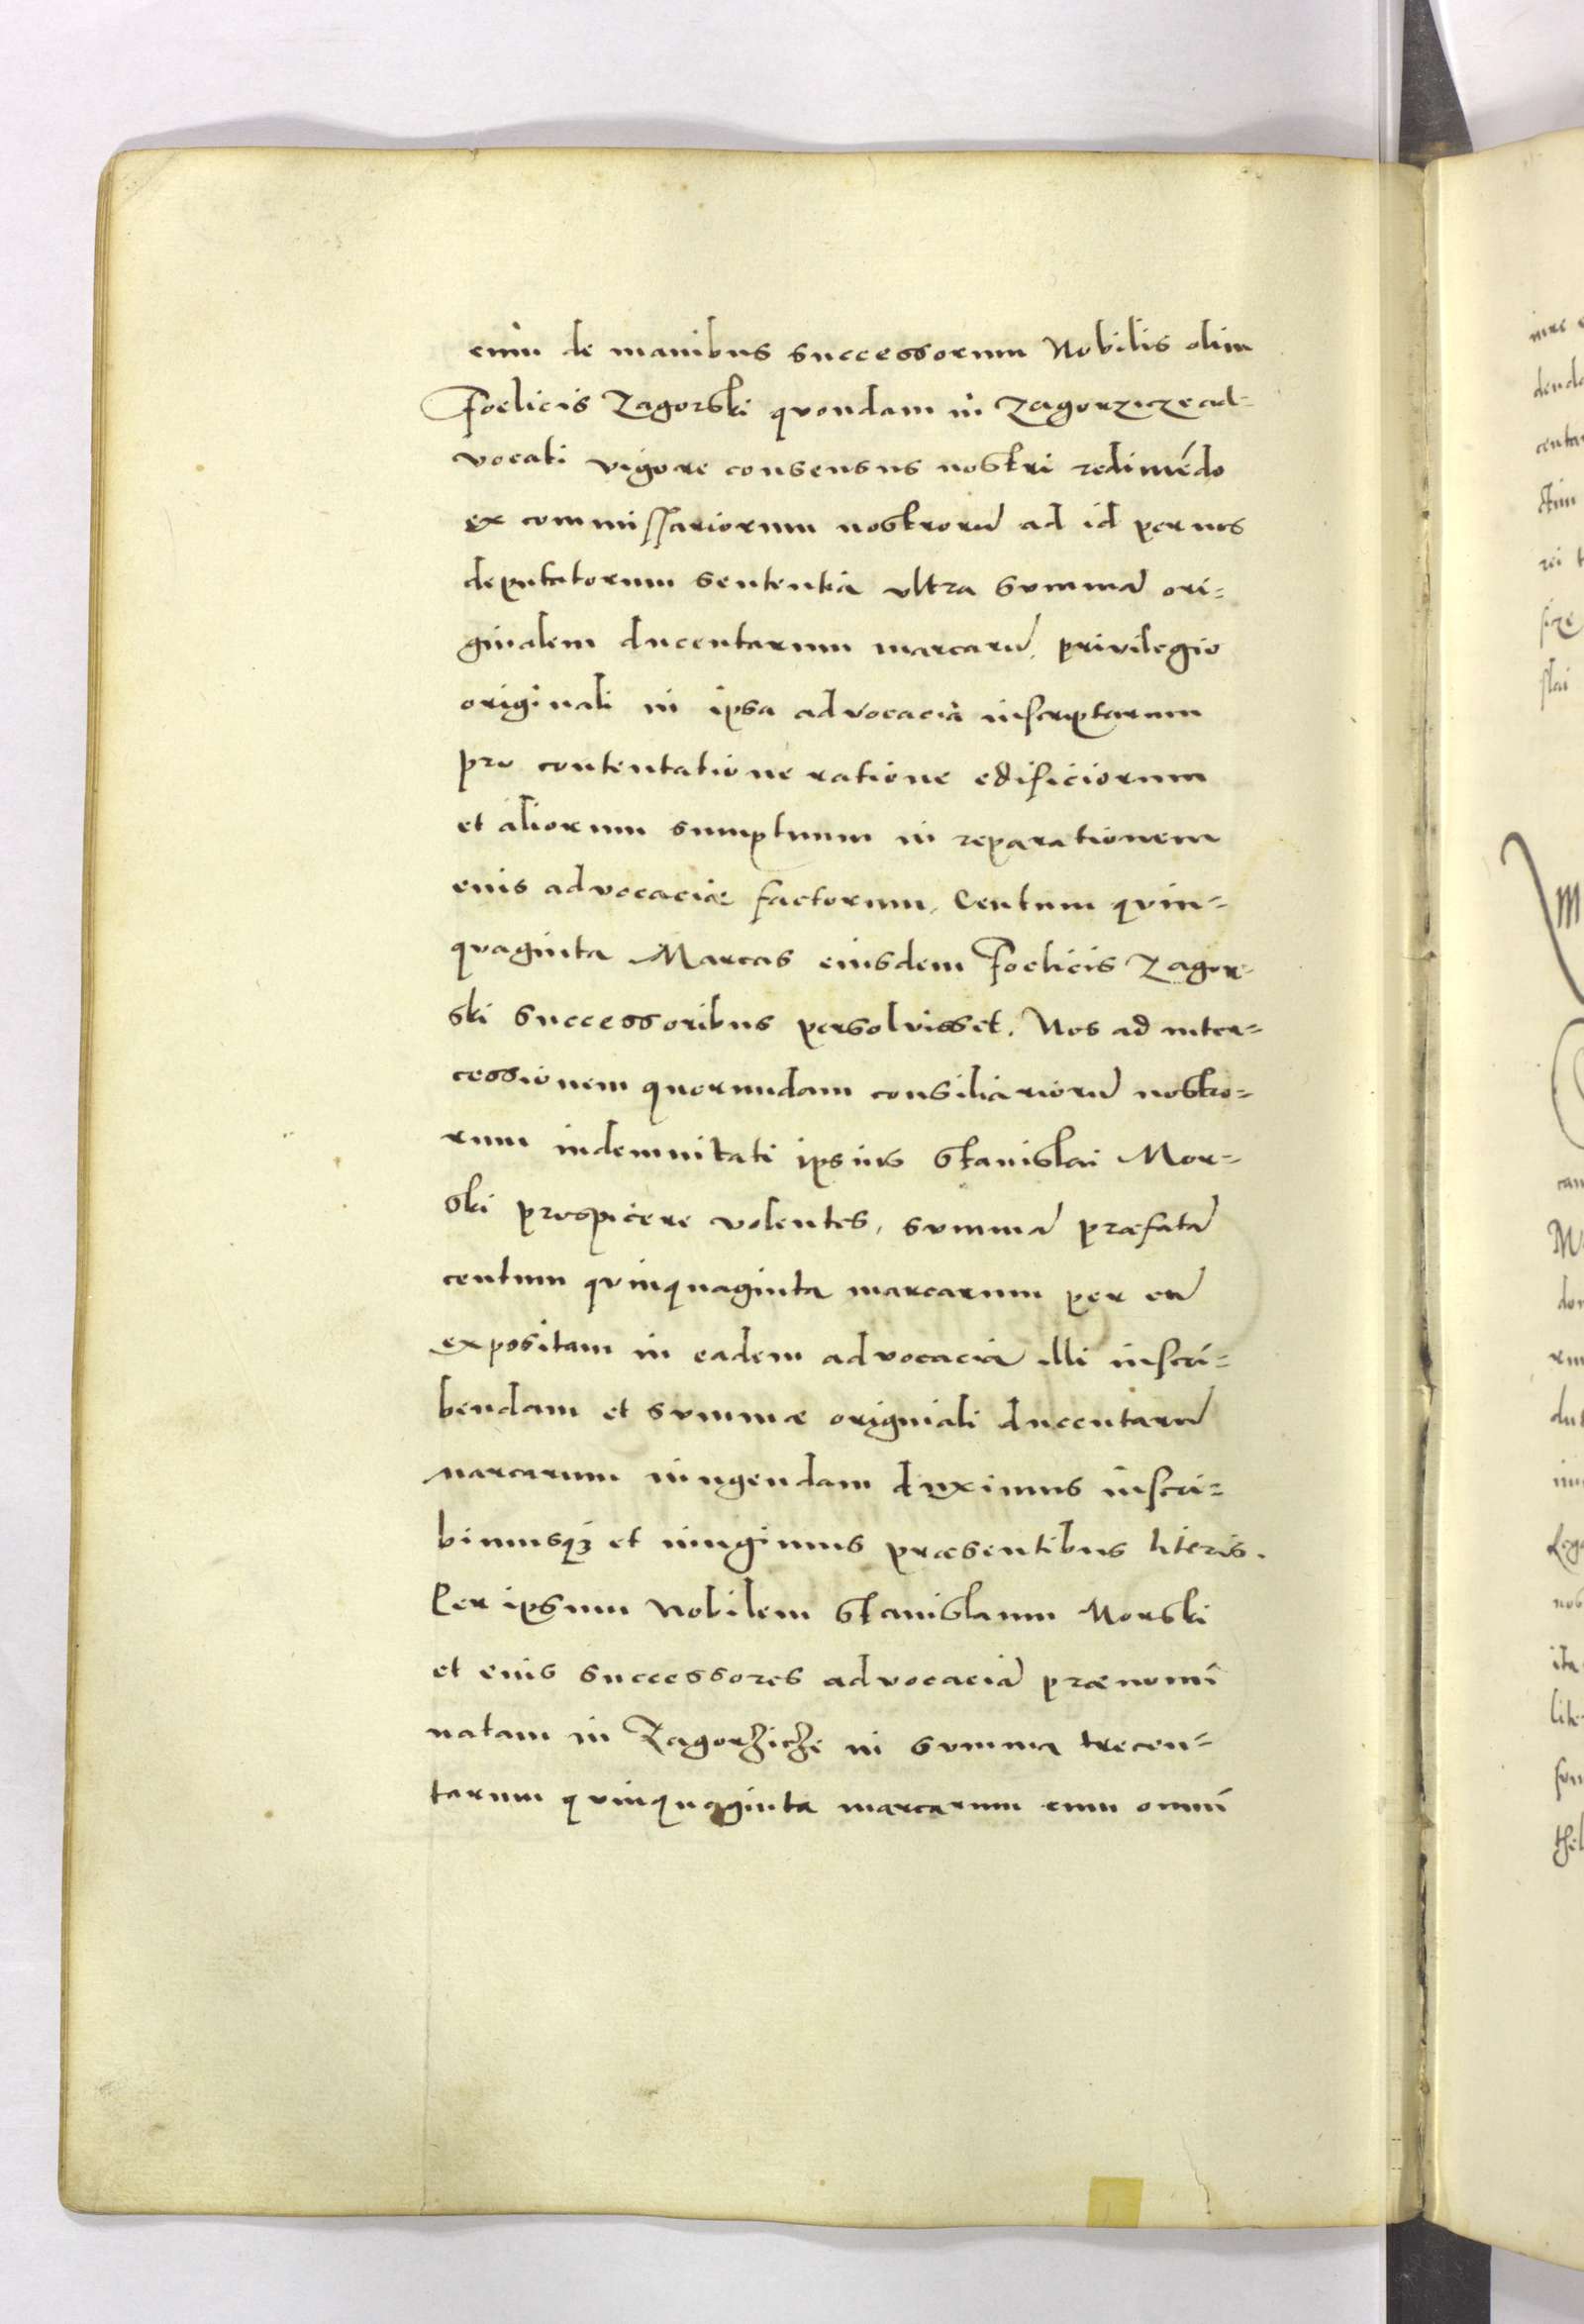 enim de manibus successorum Nobilis olim
Foelicis Zagorski quondam in Zagorzicze ad-
vocati vigore consensus nostri redimẽdo
ex commissariorum nostrorũ ad id per nos
deputatorum sententia ultra summã ori=
ginalem ducentarum marcarũ, privilegio
originali in ipsa advocacia inscriptarum
pro contentatione ratione edificiorum
et aliorum sumptuum in reparationem
eius advocaciæ factorum, Centum quin=
quaginta Marcas eiusdem Foelicis Zagor-
ski successoribus persolvisset. Nos ad inter=
cessionem quorundam consiliariorũ nostro=
rum indemnitati ipsius Stanislai Mor=
ski prospicere volentes, summã præfatã
centum quinquaginta marcarum per eũ
expositam in eadem advocacia illi inscri=
bendam et summæ originali ducentarũ
marcarum iungendam duximus inscri=
bimusqꝫ et iungimus præsentibus literis.
Per ipsum Nobilem Stanislaum Morski
et eius successores advocaciã prænomi
natam in Zagorziche in summa trecen=
tarum quinquaginta marcarum cum omni